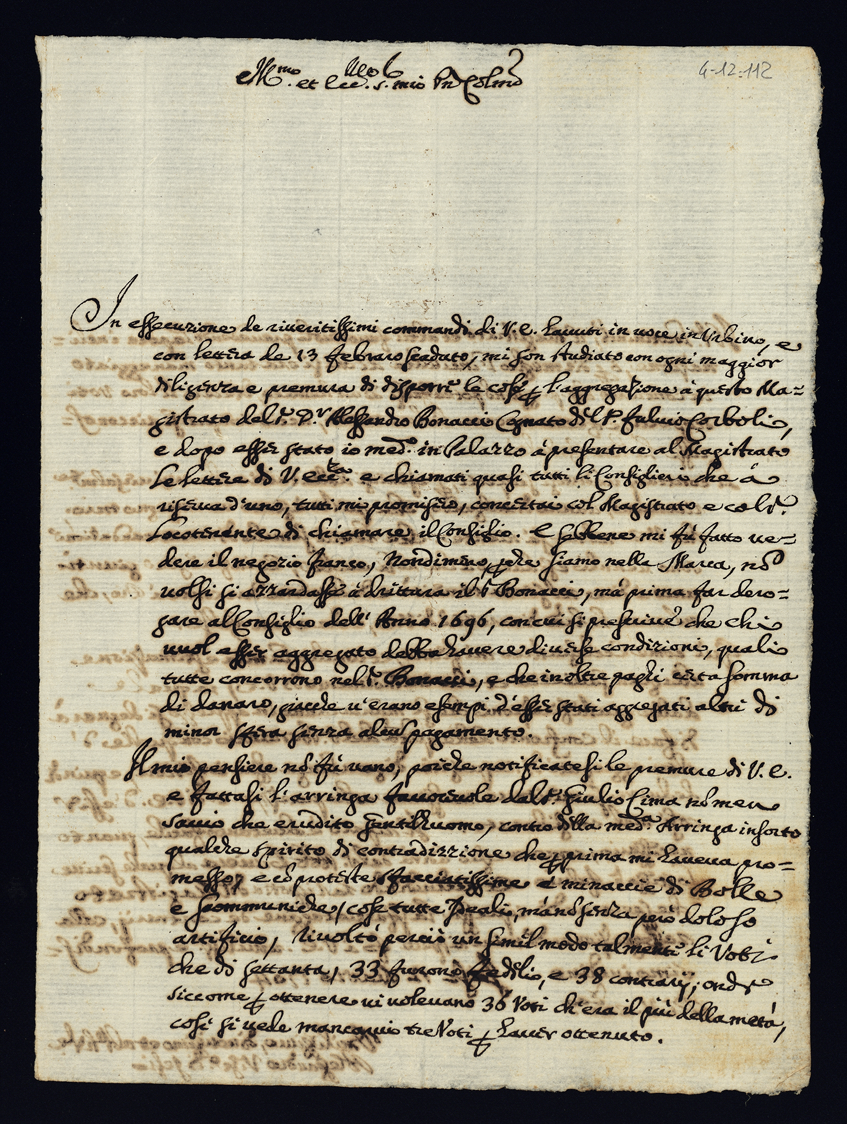 Ill.mo et Ecc.mo S. mio Pñ Colmo
4-12-112
In essecuzione de riveritissimi commandi di V.E. havuti in voce in Urbino, e
con lettera de 13 febraro scaduto, mi son studiato con ogni maggior
diligenza e premura di disporre le cose p l'aggregazione à questo Ma=
gistrato del S.r D.r Alessandro Bonacci Cognato del P. Fulvio Corboli,
e dopo esser stato io med.o in Palazzo à presentare al Magistrato
le lettere di V. Ecc.za e chiamati quasi tutti li Consiglieri che à
riserva d'uno, tutti mi promisero, concertai col Magistrato e col S.r
Locotenente di chiamare il Consiglio. E sebbene mi fù fatto ve=
dere il negozio franco, Nondimeno, perche siamo nella Marca, nõ
volsi si azzardasse à drittura il S.r Bonacci, mà prima far dero=
gare al Consiglio dell' Anno 1696, con cui si prescrive che chi
vuol esser aggregato debba havere diverse condizioni, quali
tutte concorrono nel S.r Bonacci, e che inoltre paghi certa somma
di danaro, giache v'erano esempi d'esser stati aggregati altri di
minor sfera senza alcũ pagamento.
Il mio pensiere nõ fù vano, poiche notificatesi le premure di V.E.
e fattasi l'arringa favorevole dal S.r Giulio Cima nõ men
savio che erudito gentilhuomo, contro della med.a Arringa insorto
qualche spirito di contradizzione che prima mi haveva pro=
messo, e cõ proteste sfacciatissime e minaccie di Bolle
e scommuniche, cose tutte Ideali, mà nõ senza però doloso
artificio, rivoltò perciò un simil modo talmente li Voti
che di settanta, 33 furono fedeli, e 38 contrarij; onde
siccome p ottenere vi volevano 36 Voti ch'era il più della metà,
così si vede mancorno tre Voti p haver ottenuto.